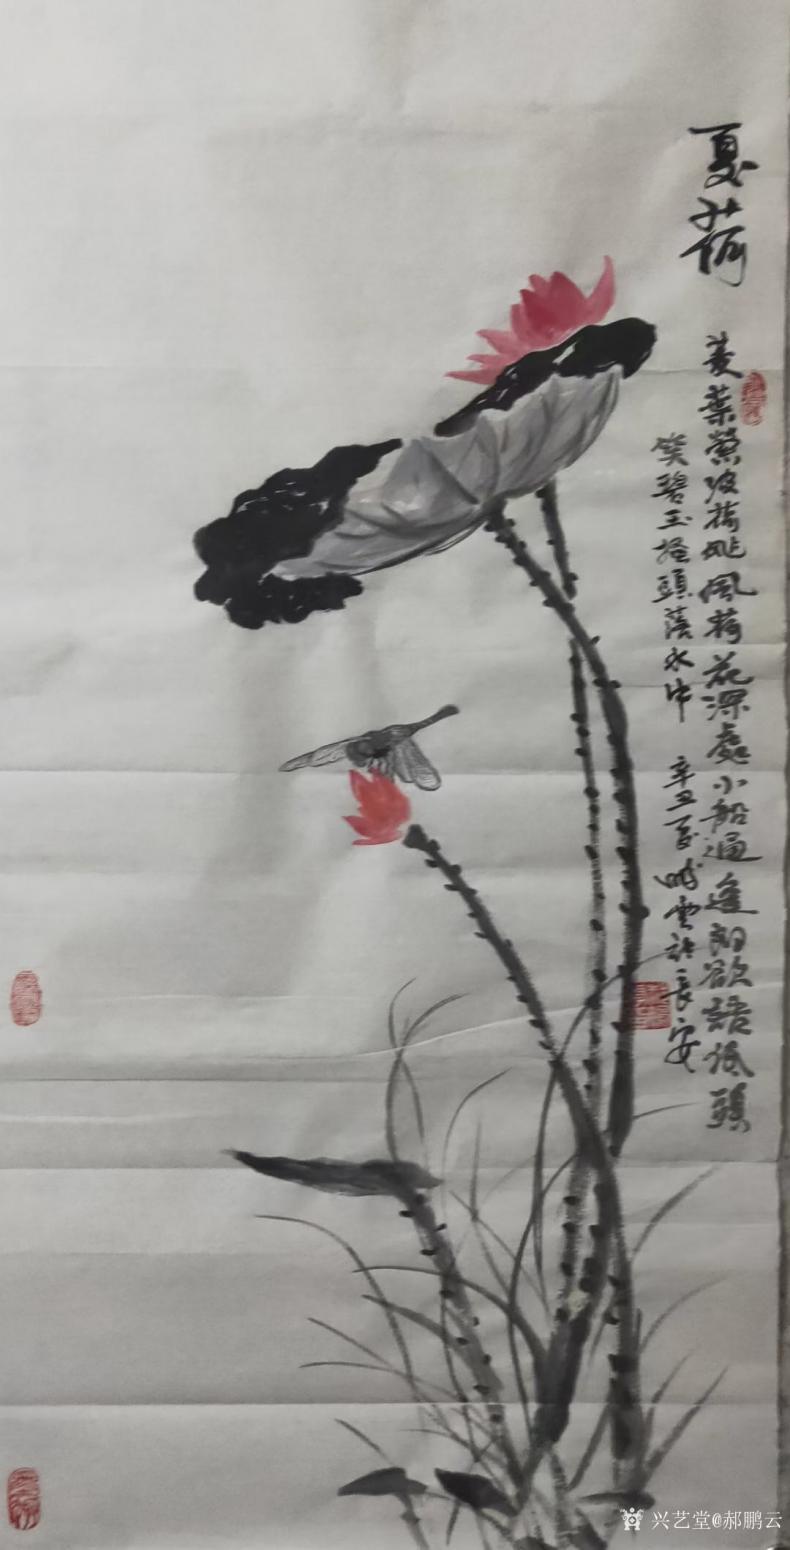 夏荷
菱葉縈波荷飐風荷花深處小船通逢郎欲語低頭
笑碧玉搔頭落水中
辛丑夏 雲於長安
兴艺堂@郝鹏云